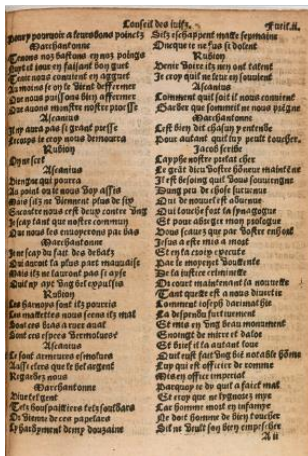 Conseil des iuifz.
Fueil.ii.
pourvoir a leurs bons poinctz
Marchantonne
Tenons noz bastons en noz poings
tout en faisant bon guet
Tenir nous convient en agguet
Au moins se on le vient deffermer
Que nous puissons bien affermer
Que avons monstre nostre proesse
Ascanius
Il n'y aura pas si grant presse
le croy nous demours
Rubion
On ne scet
Ascanius
Viengne qui pourra
Au point ou nous voy assis
Mais silz ne viennent plus de six
Secontre nous est deux contre ung
Je scay tant que nostre commun
Que nous les envoyerons par bas
Marchantonne
Jen scay du fait des debatz
Qui auroit la plus part mauvaise
Mais ilz ne lauront pas si ayse
Quil ny ayt ung bel expulsis
Rubion
Les harnoys sont ilz pourris
Les maillettes nous seens ilz mal
Sont ces bras a ruer aval
Sont ces espees vermolues
Ascanius
Ce sont armeures esmolues
Assez cleres que le bel argent
Regardez nous
Marchantonne
Dieu le gent
Telz houspailliers telz souldars
Or vienne de ces papelars
Le hardyment demy douzaine
Silz eschappent malle sepmaine
Oncque ie ne fus si dolent
Rubion
Venir Boire ilz nen ont talent
Je croy quil ne leur en souvient
Ascanius
Comment quil soit il nous convient
Garder que sommeil ne nous preigne
Marchantonne
Cest bien dit chascun y entende
Pour autant que luy peult touchier.
Jacob scribe
Cayphe nostre prelat cher
Le grāt dieu vostre honneur maintiēne
Il est besoing que vous souviengne
Dung peu de chose survenue
Qui de nouvel est advenue
Qui touche fort la synagogue
Et pour abreger mon prologue
Vous scavez que par vostre enhort
Jesus a este mis a mort
Et en la croix execute
Par le moyen et voulente
De la iustice criminelle
Or court maintenant la nouvelle
Tant quelle est a nous divertie
Comment ioseph darimathie
La despendu furtivement
Et mis en ung beau monument
Enoingt de mirre et daloe
Et brief il a autant loue
Quil eust fait ung bie notable hōme
Luy qui est officier de romme
Mis en office imperial
Parquoy ie dy quil a faict mal
Et croy que ne ignorez mye
Car homme mort en infamye
Ne doit homme de bien toucher
Sil ne veult soy bien empescher
A ii